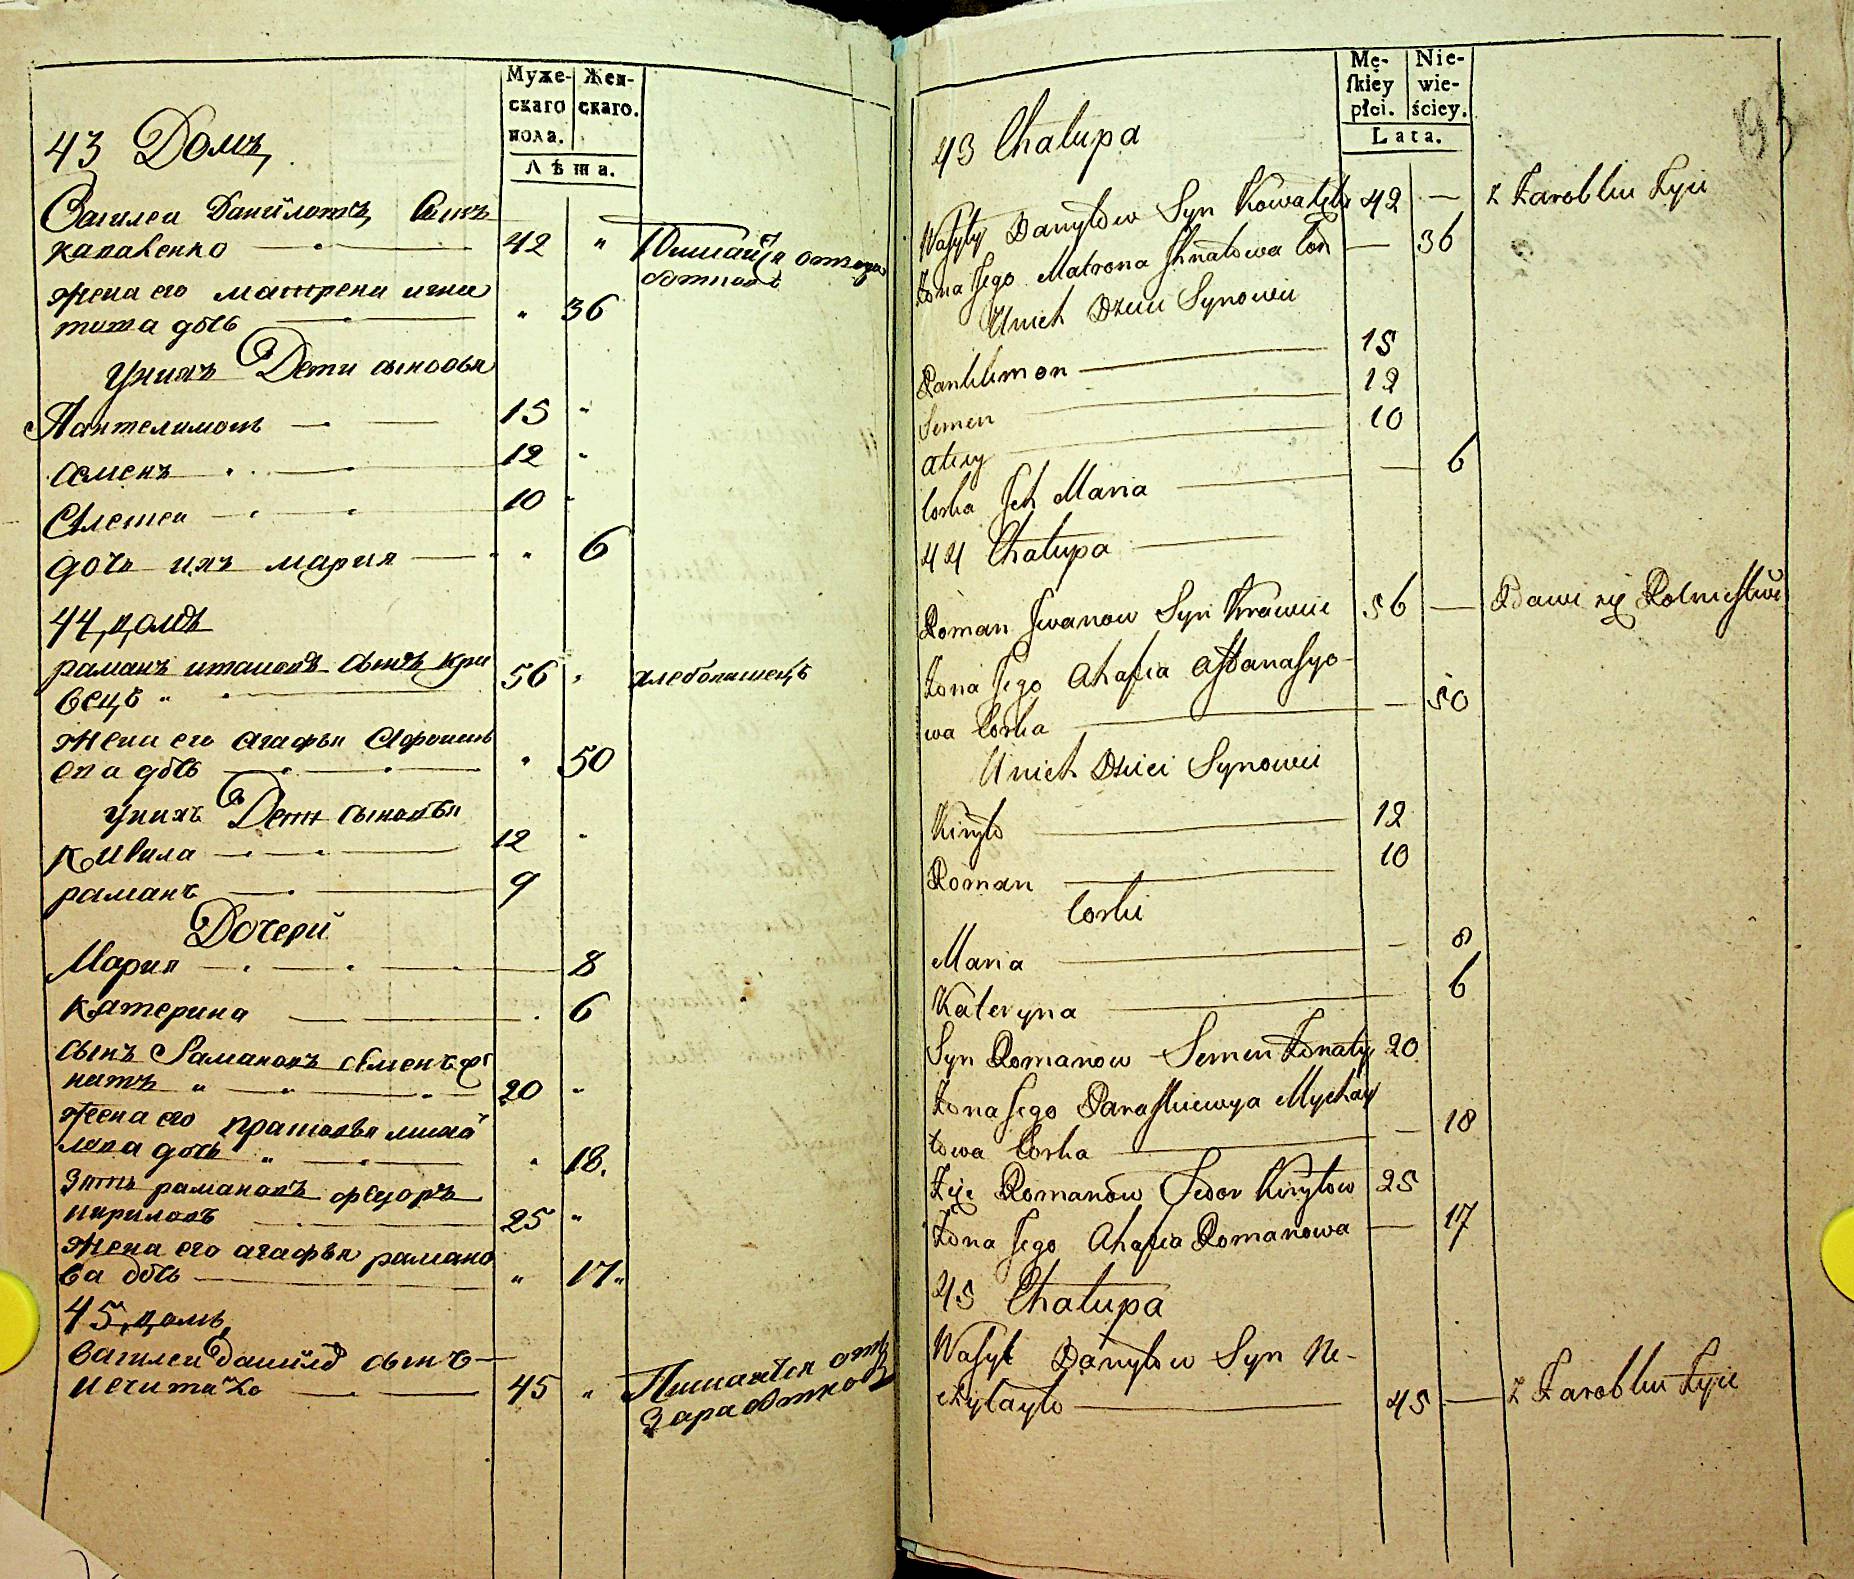 Муже-
скаго
пола.
Жен-
скаго.
Лѣта.
43 Домъ
Василеи Данилотъ Сынъ
каваленко 42 "
Питаится отзара
ботковъ
жена его матрена игна
това доч " 36
Унихъ Дети сыновья
Пантелимонъ 15 "
Семенъ 12 "
Олексеи 10 "
доч ихъ мария " 6
44, домъ
раманъ ивановъ сынъ кра
вецъ " 56 " хлебопашецъ
жена его агафья Афонась
ева доч " 50
Унихъ Дети сыновья
Кирила 12 "
раманъ 9
Дочери
Мария 8
катерина 6
сынъ Рамановъ семенъ же
натъ " 20 "
жена его прасковья михай
лова доч " " 18.
Зять рамановъ федоръ
кириловъ 25 "
жена его агафья рамано
ва доч " 17"
45, домъ
василеи данилов сынъ
нечитайло 45 " Питаится отъ
Заработковъ
Mę-
skiey
płci.
Nie-
wie-
ściey.
Lata.
193
43 Chałupa
Wasyly Danyłow Syn Kowalęko 42 — z Zarobku Żyie
Żona Jego Matrona Ihnatowa Cor — 36
Unich Dzieci Synowie
Pantelimon 15
Semen 12
Alexy 10
Corka Ich Maria — 6
44 Chałupa
Roman Iwanow Syn Krawiec 56 — Bawi się Rolnictwem
Żona Jego Ahafia Affanasyo-
wa Corka — 50
Unich Dzieci Synowie
Kiryło 12
Roman 10
Corki
Maria — 8
Kateryna 6
Syn Romanow Semen Żonaty 20
Żona Jego Paraskiewya Mychay
łowa Corka — 18
Zięć Romanow Fedor Kiryłow 25
Żona Jego Ahafia Romanowa — 17
45 Chałupa
Wasyl Danyłow Syn Ne-
czytayło 45 — z Zarobku Żyie